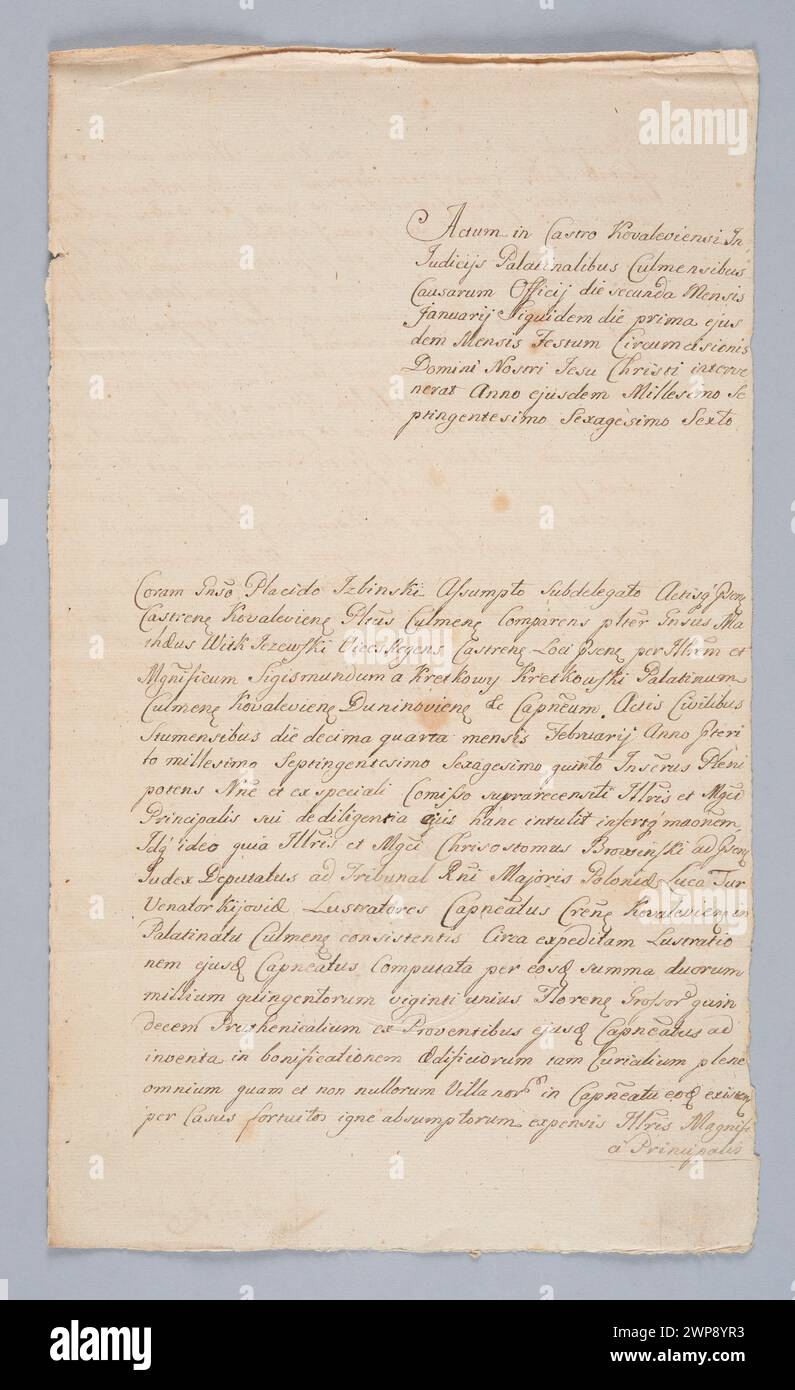 Actum in Castro Kovaleviensi In
Judicijs Palatinalibus Culmensibus
Causarum Officij die secunda Mensis
Januarij Siquidem die prima ejus
dem Mensis Festum Circumcisionis
Domini Nostri Jesu Christi interve
nerat Anno ejusdem Millesimo Se
ptingentesimo Sexagesimo Sexto
Coram Gnso Placido Izbinski Assumpto Subdelegato Actisq
Castrenę Kovalevienę Pltus Culmenę Comparens plter Gnsus Ma
thæus Witk Jezewski Vicesgerens Castrenę Loci per Illrem et
Mgnificum Sigismundum a Kretkowy Kretkowski Palatinum
Culmenę Kovalevienę Duninovienę &c Capneum. Actis Civilibus
Stumensibus die decima quarta mensis Februarij Anno
to millesimo Septingentesimo Sexagesimo quinto Pleni
potens Nne et ex speciali Comisso suprarecensiti Illris et Mgci
Principalis sui de diligentia hanc intulit
Idq ideo quia Illris et Mgci Chrisostomus ad
Judex Deputatus ad Tribunal Rni Majoris Poloniæ Luca Tur
Venator Kijoviæ Lustratores Capneatus Kovalevienę in
Palatinatu Culmenę consistentis Circa expeditam Lustratio
nem ejusd Capneatus Computata per eosd summa duorum
millium quingentorum viginti unius Florenę Grossor quin
decem Pruthenicalium ex Proventibus ejusd Capneatus ad
inventa in bonificationem ædificiorum tam Curialium plene
omnium quam et non nullorum Villanor in Capneatu eod
per Casus fortuitos igne absumptorum expensis Illris Magnifi
ci Principalis
alamy
Image ID: 2WP8YR3
www.alamy.com